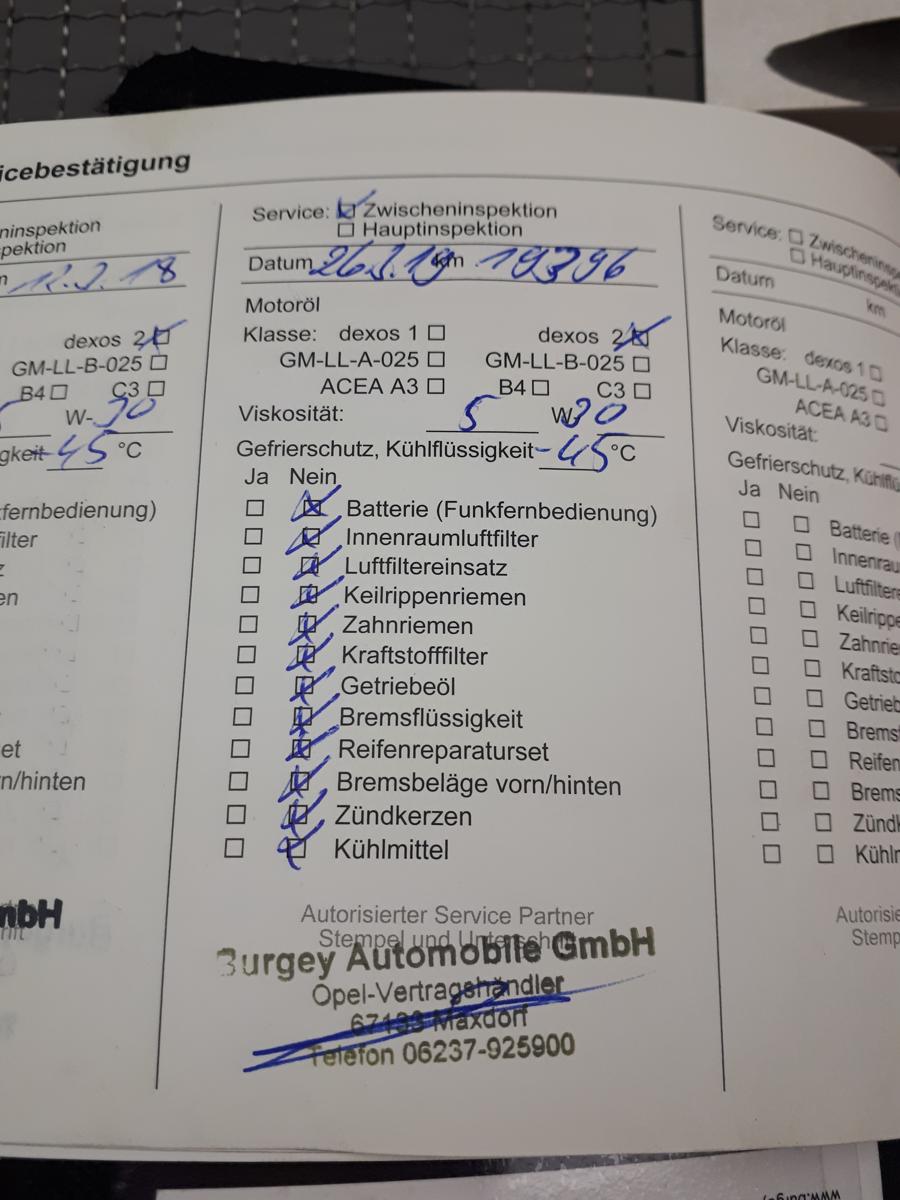 icebestätigung
ninspektion
pektion
12.2.18
dexos 2
GM-LL-B-025
B4 C3
W-30
gkeit -45 °C
fernbedienung)
ilter
en
et
n/hinten
mbH
Service: Zwischeninspektion
Hauptinspektion
Datum 26.2.19 km 19396
Motoröl
Klasse: dexos 1 dexos 2
GM-LL-A-025 GM-LL-B-025
ACEA A3 B4 C3
Viskosität: 5 W 30
Gefrierschutz, Kühlflüssigkeit -45 °C
Ja Nein
Batterie (Funkfernbedienung)
Innenraumluftfilter
Luftfiltereinsatz
Keilrippenriemen
Zahnriemen
Kraftstofffilter
Getriebeöl
Bremsflüssigkeit
Reifenreparaturset
Bremsbeläge vorn/hinten
Zündkerzen
Kühlmittel
Autorisierter Service Partner
Stempel und Unterschrift
Burgey Automobile GmbH
Opel-Vertragshändler
67133 Maxdorf
Telefon 06237-925900
Service: Zwischeninspe
Hauptinspek
Datum km
Motoröl
Klasse: dexos 1
GM-LL-A-025
ACEA A3
Viskosität:
Gefrierschutz, Kühlflü
Ja Nein
Batterie (
Innenrau
Luftfilter
Keilrippe
Zahnrie
Kraftsto
Getrieb
Bremsf
Reifen
Brems
Zündk
Kühlr
Autorisie
Stemp
www.burgey